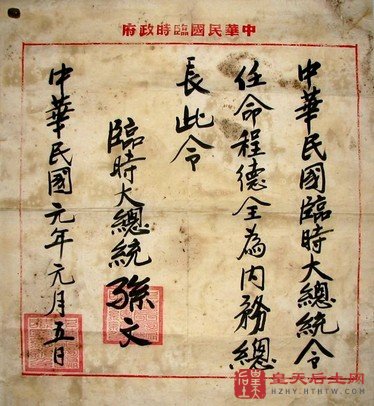 中華民國臨時政府
中華民國臨時大總統令
任命程德全為內務總
長此令
臨時大總統孫文
中華民國元年元月五日
皇天后土网
HZHY.HTHTW.COM